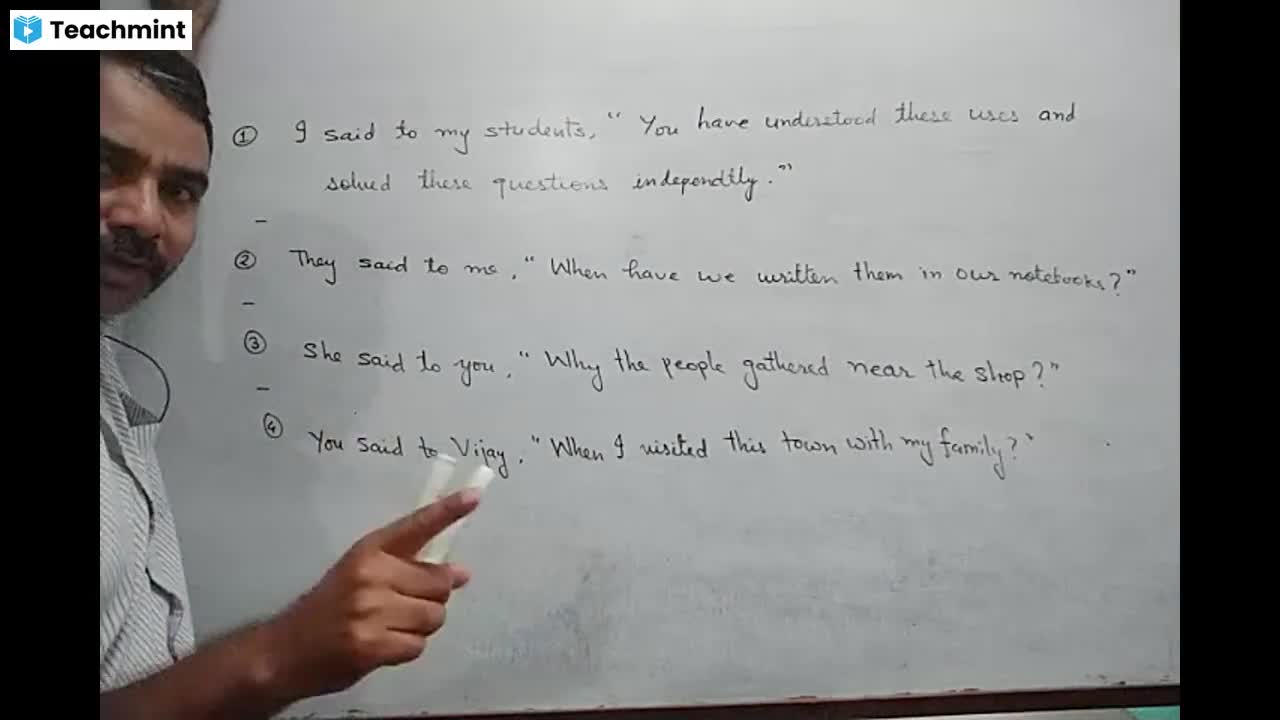 Teachmint
① I said to my students, "You have understood these uses and
solved these questions independtly."
-
② They said to me, "When have we written them in our notebooks?"
-
③ She said to you, "Why the people gathered near the shop?"
-
④ You said to Vijay, "When I visited this town with my family?"